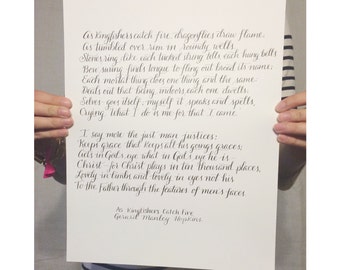 As Kingfishers catch fire, dragonflies draw flame;
As tumbled over rim in roundy wells
Stones ring; like each tucked string tells each hung bells
Bow swung finds tongue to fling out broad its name;
Each mortal thing does one thing and the same:
Deals out that being indoors each one dwells;
Selves goes itself; myself it speaks and spells,
Crying What I do is me: for that I came.
I say more: the just man justices;
Keeps grace: that keeps all his goings graces;
Acts in God's eye what in God's eye he is -
Christ - for Christ plays in ten thousand places,
Lovely in limbs, and lovely in eyes not his
To the Father through the features of men's faces.
As Kingfishers Catch Fire
Gerard Manley Hopkins